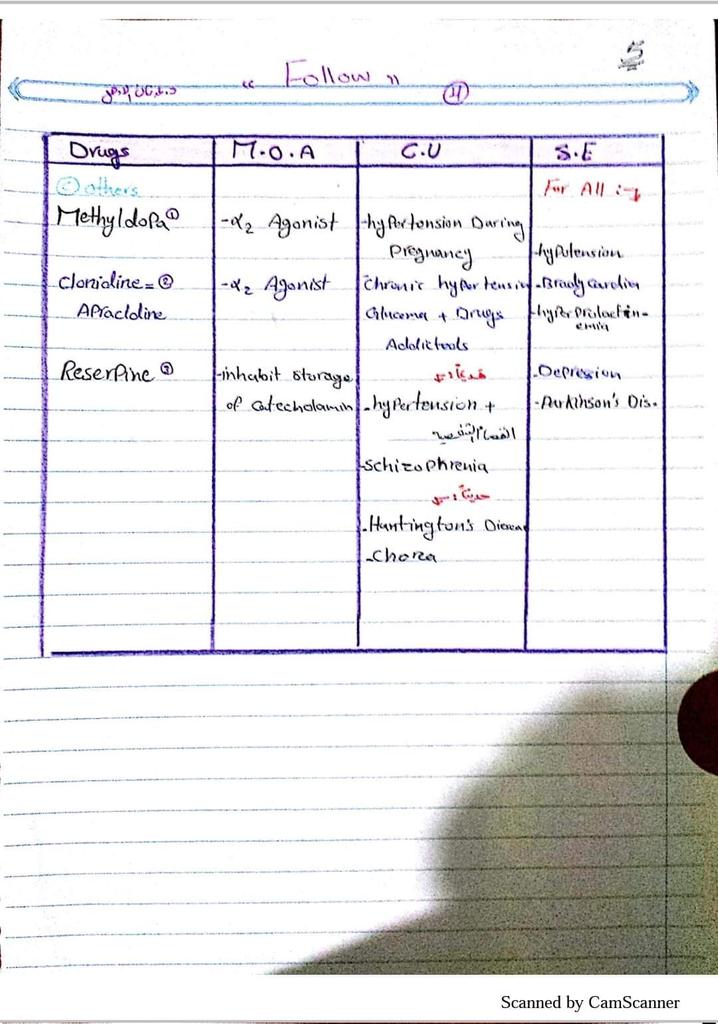 5
" Follow "
4
Drugs M.O.A C.U S.E
© others For All :-
Methyldopa ① -α₂ Agonist -hypertension During
Pregnancy -hypotension
Clonidine = ② -α₂ Agonist Chronic hypertension -Bradycardia
Apraclidine Glucoma + Drugs -hyperprolactin-
emia
Addicteds
Reserpine ③ -inhabit storage قديماً :- -Depression
of Catecholamin -hypertension + -Parkinson's Dis.
-Schizophrenia
حديثاً :-
-Huntington's Disease
-Chorea
Scanned by CamScanner